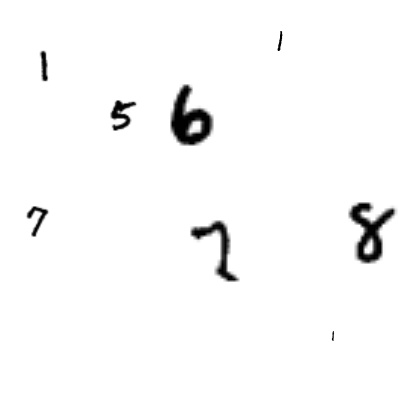 1 1
5 6
7 7 8
1